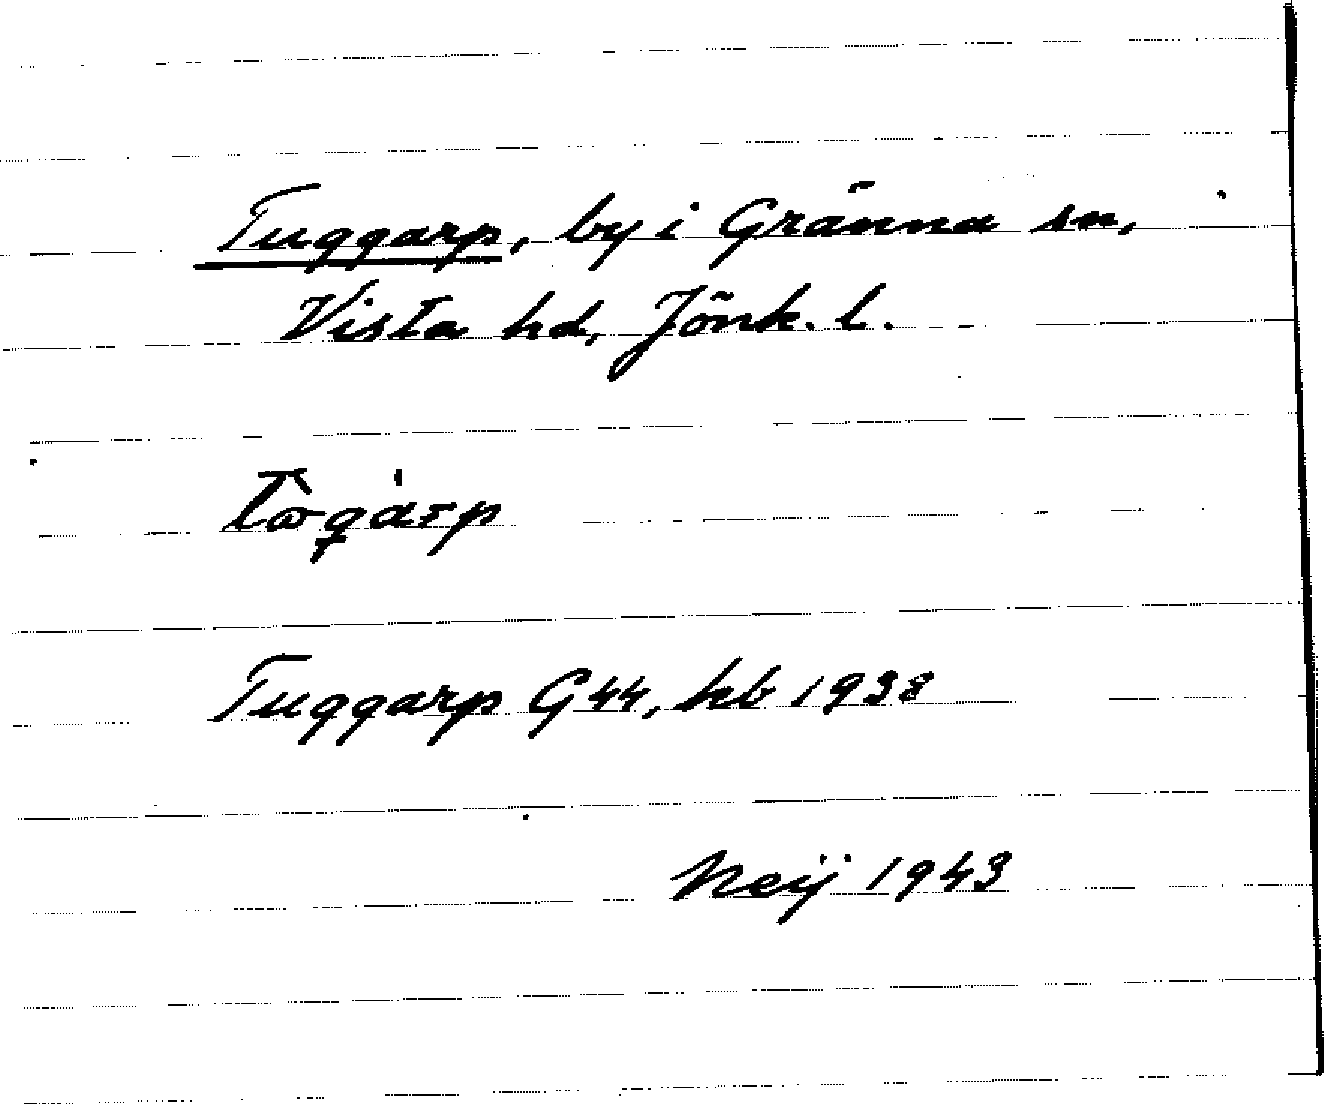 Tuggarp, by i Gränna sn,
Vista hd, Jönk. l.
Tuggarp G 44, hb 1938
Neij 1943